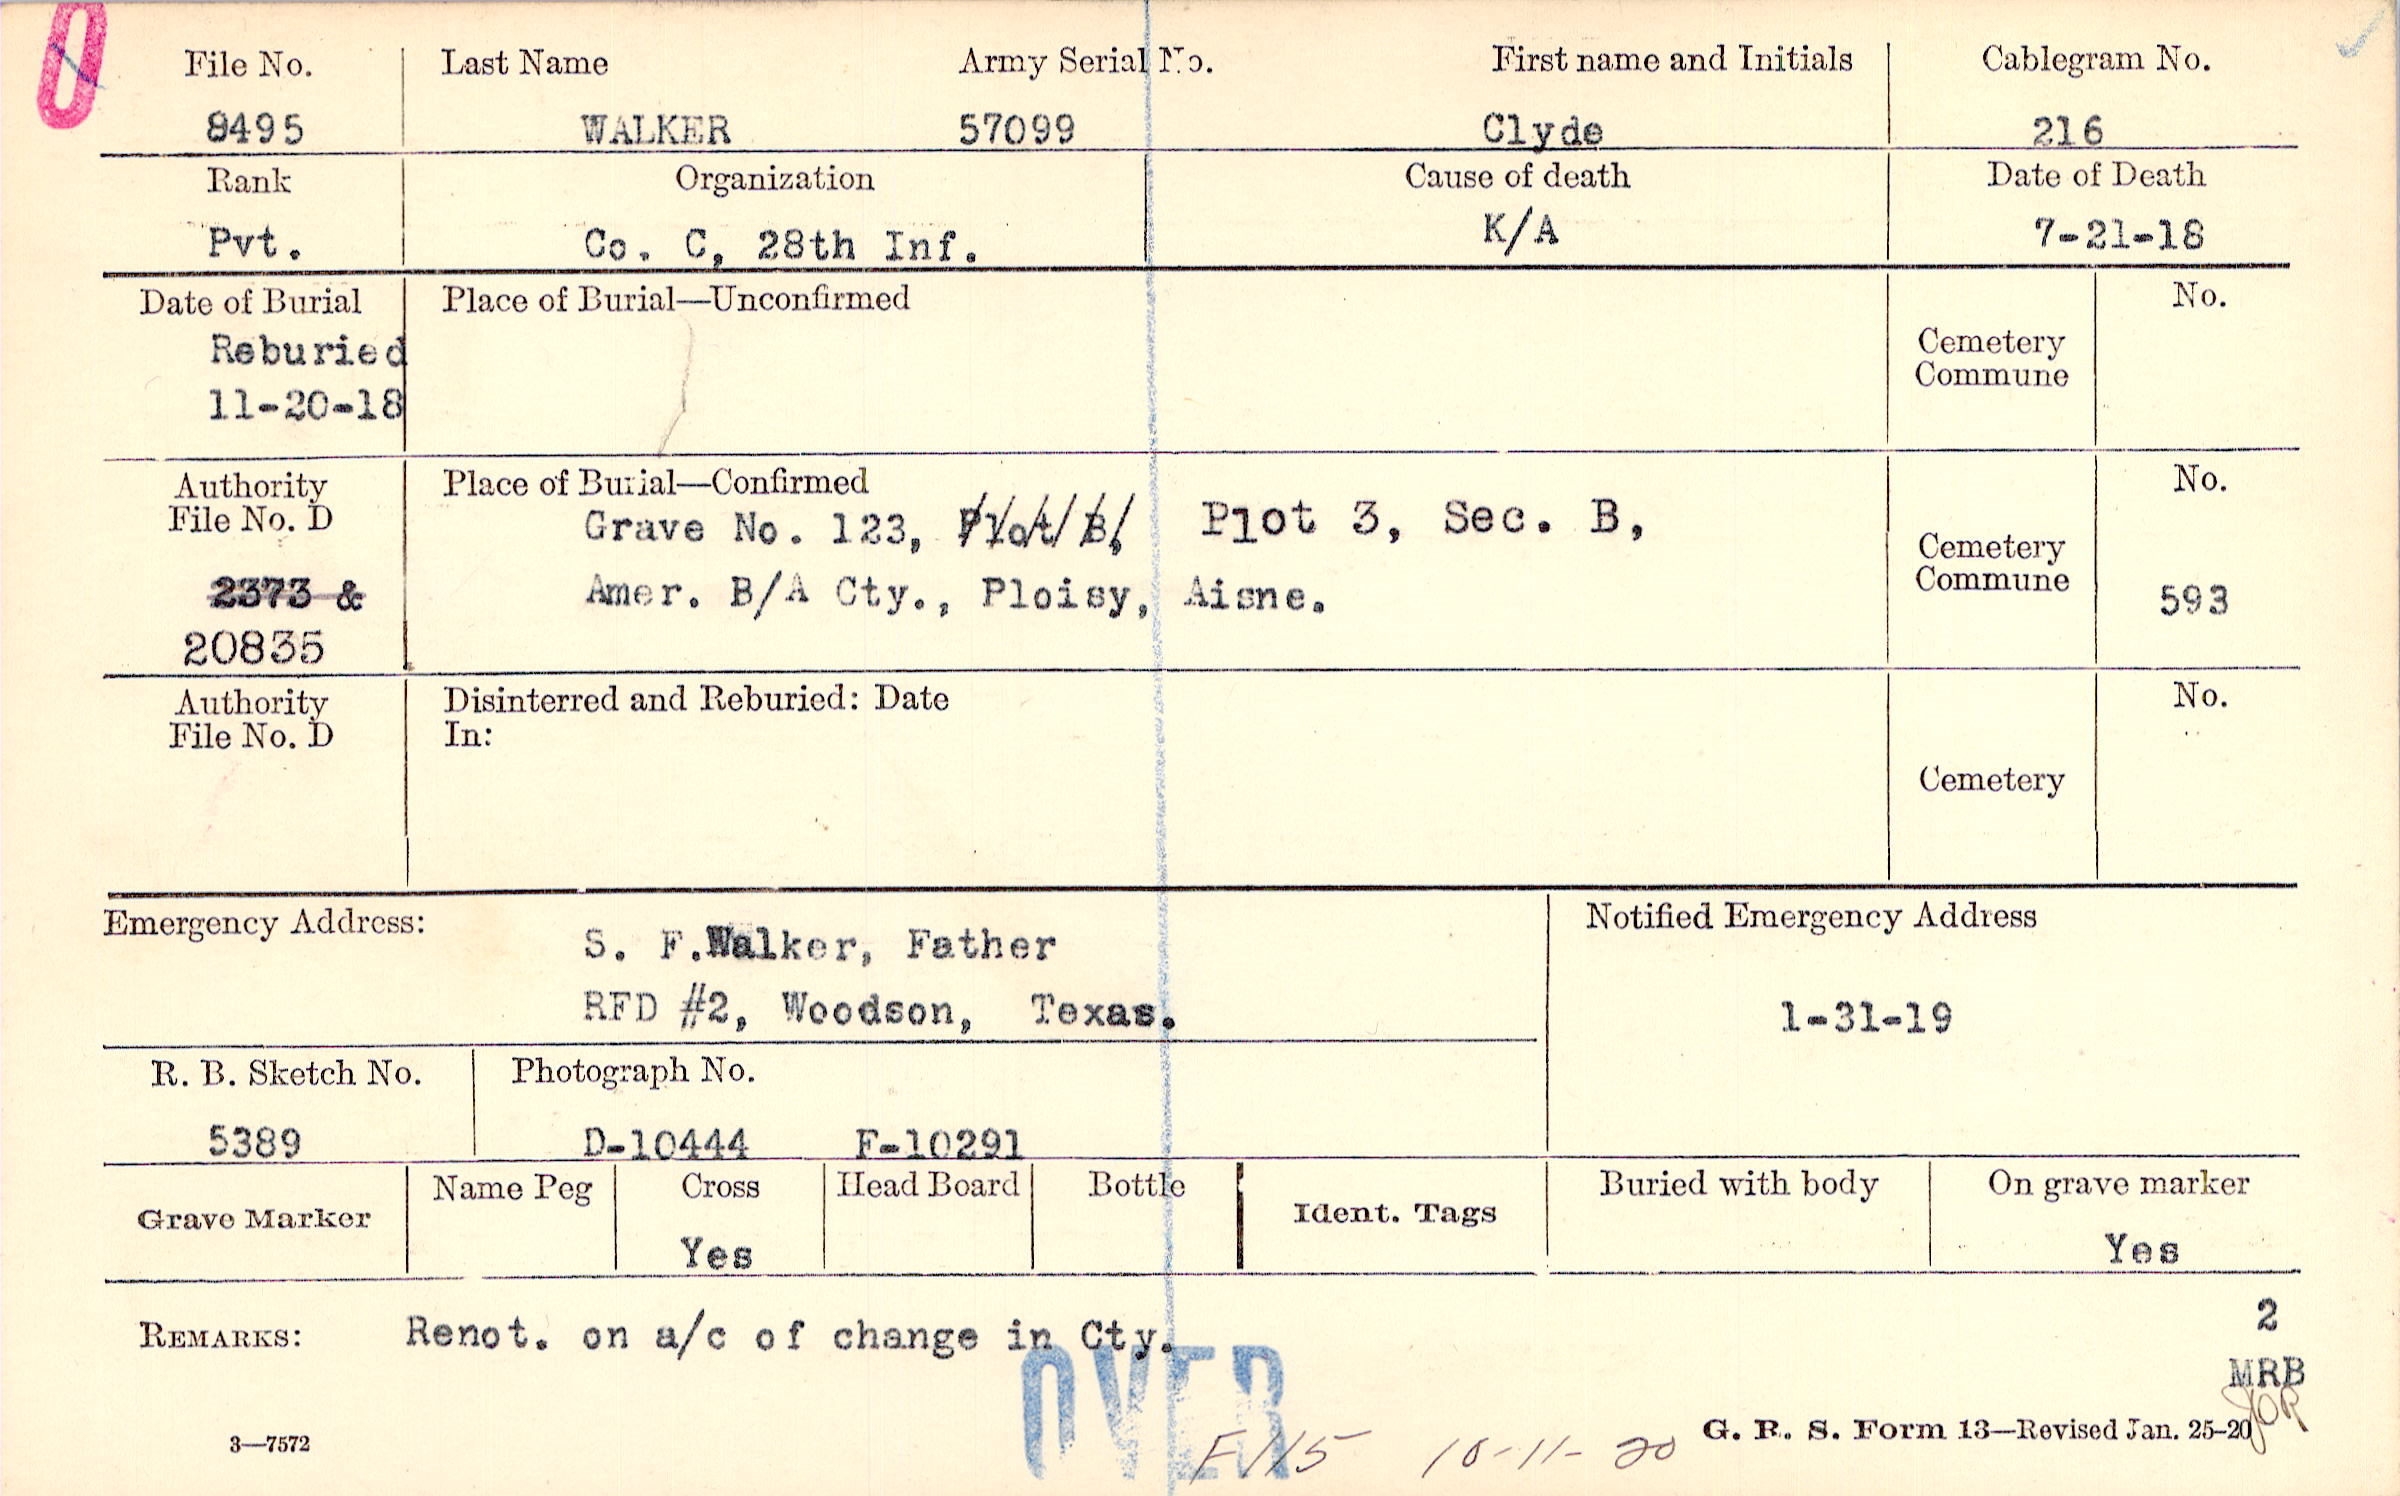 0
File No. Last Name Army Serial No. First name and Initials Cablegram No.
8495 WALKER 57099 Clyde 216
Rank Organization Cause of death Date of Death
Pvt. Co. C, 28th Inf. K/A 7-21-18
Date of Burial Place of Burial—Unconfirmed No.
Reburied
11-20-18
Cemetery
Commune
Authority Place of Burial—Confirmed No.
File No. D
Grave No. 123, Plot B, Plot 3, Sec. B,
Cemetery
Commune
2373 & Amer. B/A Cty., Ploisy, Aisne. 593
20835
Authority Disinterred and Reburied: Date No.
File No. D In:
Cemetery
Emergency Address: Notified Emergency Address
S. F. Walker, Father
RFD #2, Woodson, Texas. 1-31-19
R. B. Sketch No. Photograph No.
5389 D-10444 F-10291
Grave Marker Name Peg Cross Head Board Bottle Ident. Tags Buried with body On grave marker
Yes Yes
2
REMARKS: Renot. on a/c of change in Cty.
MRB
JOR
OVER
3—7572 G. R. S. Form 13—Revised Jan. 25-20
F115 10-11-20